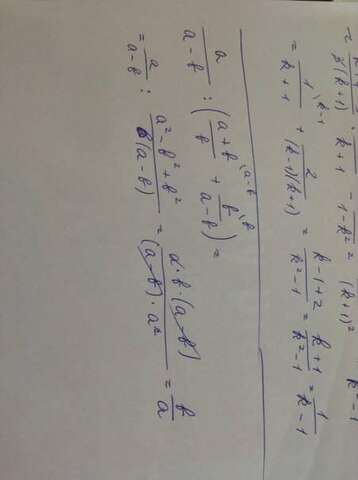 = 1/(k+1) \ k-1 + 2/((k-1)(k+1)) = (k-1+2)/(k²-1) = (k+1)/(k²-1) = 1/(k-1)
a/(a-b) : ((a+b)/b \ a-b + b/(a-b) \ b) =
= a/(a-b) : (a²-b²+b²)/(b(a-b)) = (a·b·(a-b))/((a-b)·a²) = b/a